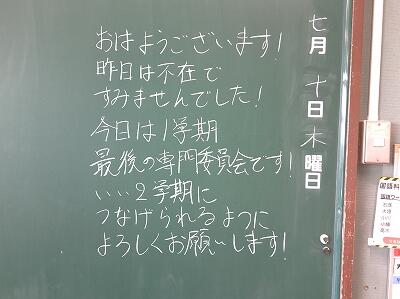 七月 十日 木曜日
おはようございます!
昨日は不在で
すみませんでした!
今日は1学期
最後の専門委員会です!
いい2学期に
つなげられるように
よろしくお願いします!
国語科